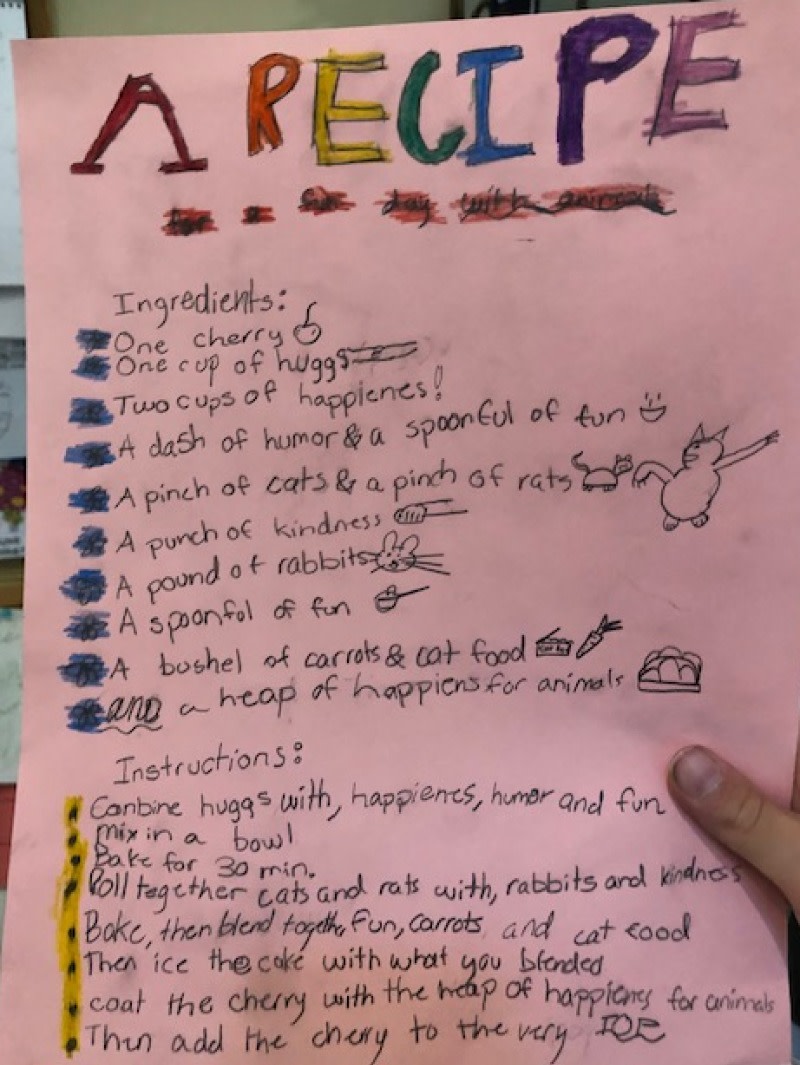 A RECIPE
for a fun day with animals
Ingredients:
One cherry
One cup of huggs
Two cups of happienes!
A dash of humor & a spoonful of fun
A pinch of cats & a pinch of rats
A punch of kindness
A pound of rabbits
A spoonful of fun
A bushel of carrots & cat food
and a heap of happiens for animals
Instructions:
Conbine huggs with, happienes, humor and fun
mix in a bowl
Bake for 30 min.
Roll together cats and rats with, rabbits and kindness
Bake, then blend togeth, Fun, carrots and cat food
Then ice the cake with what you blended
coat the cherry with the heap of happienes for animals
Then add the cherry to the very TOP